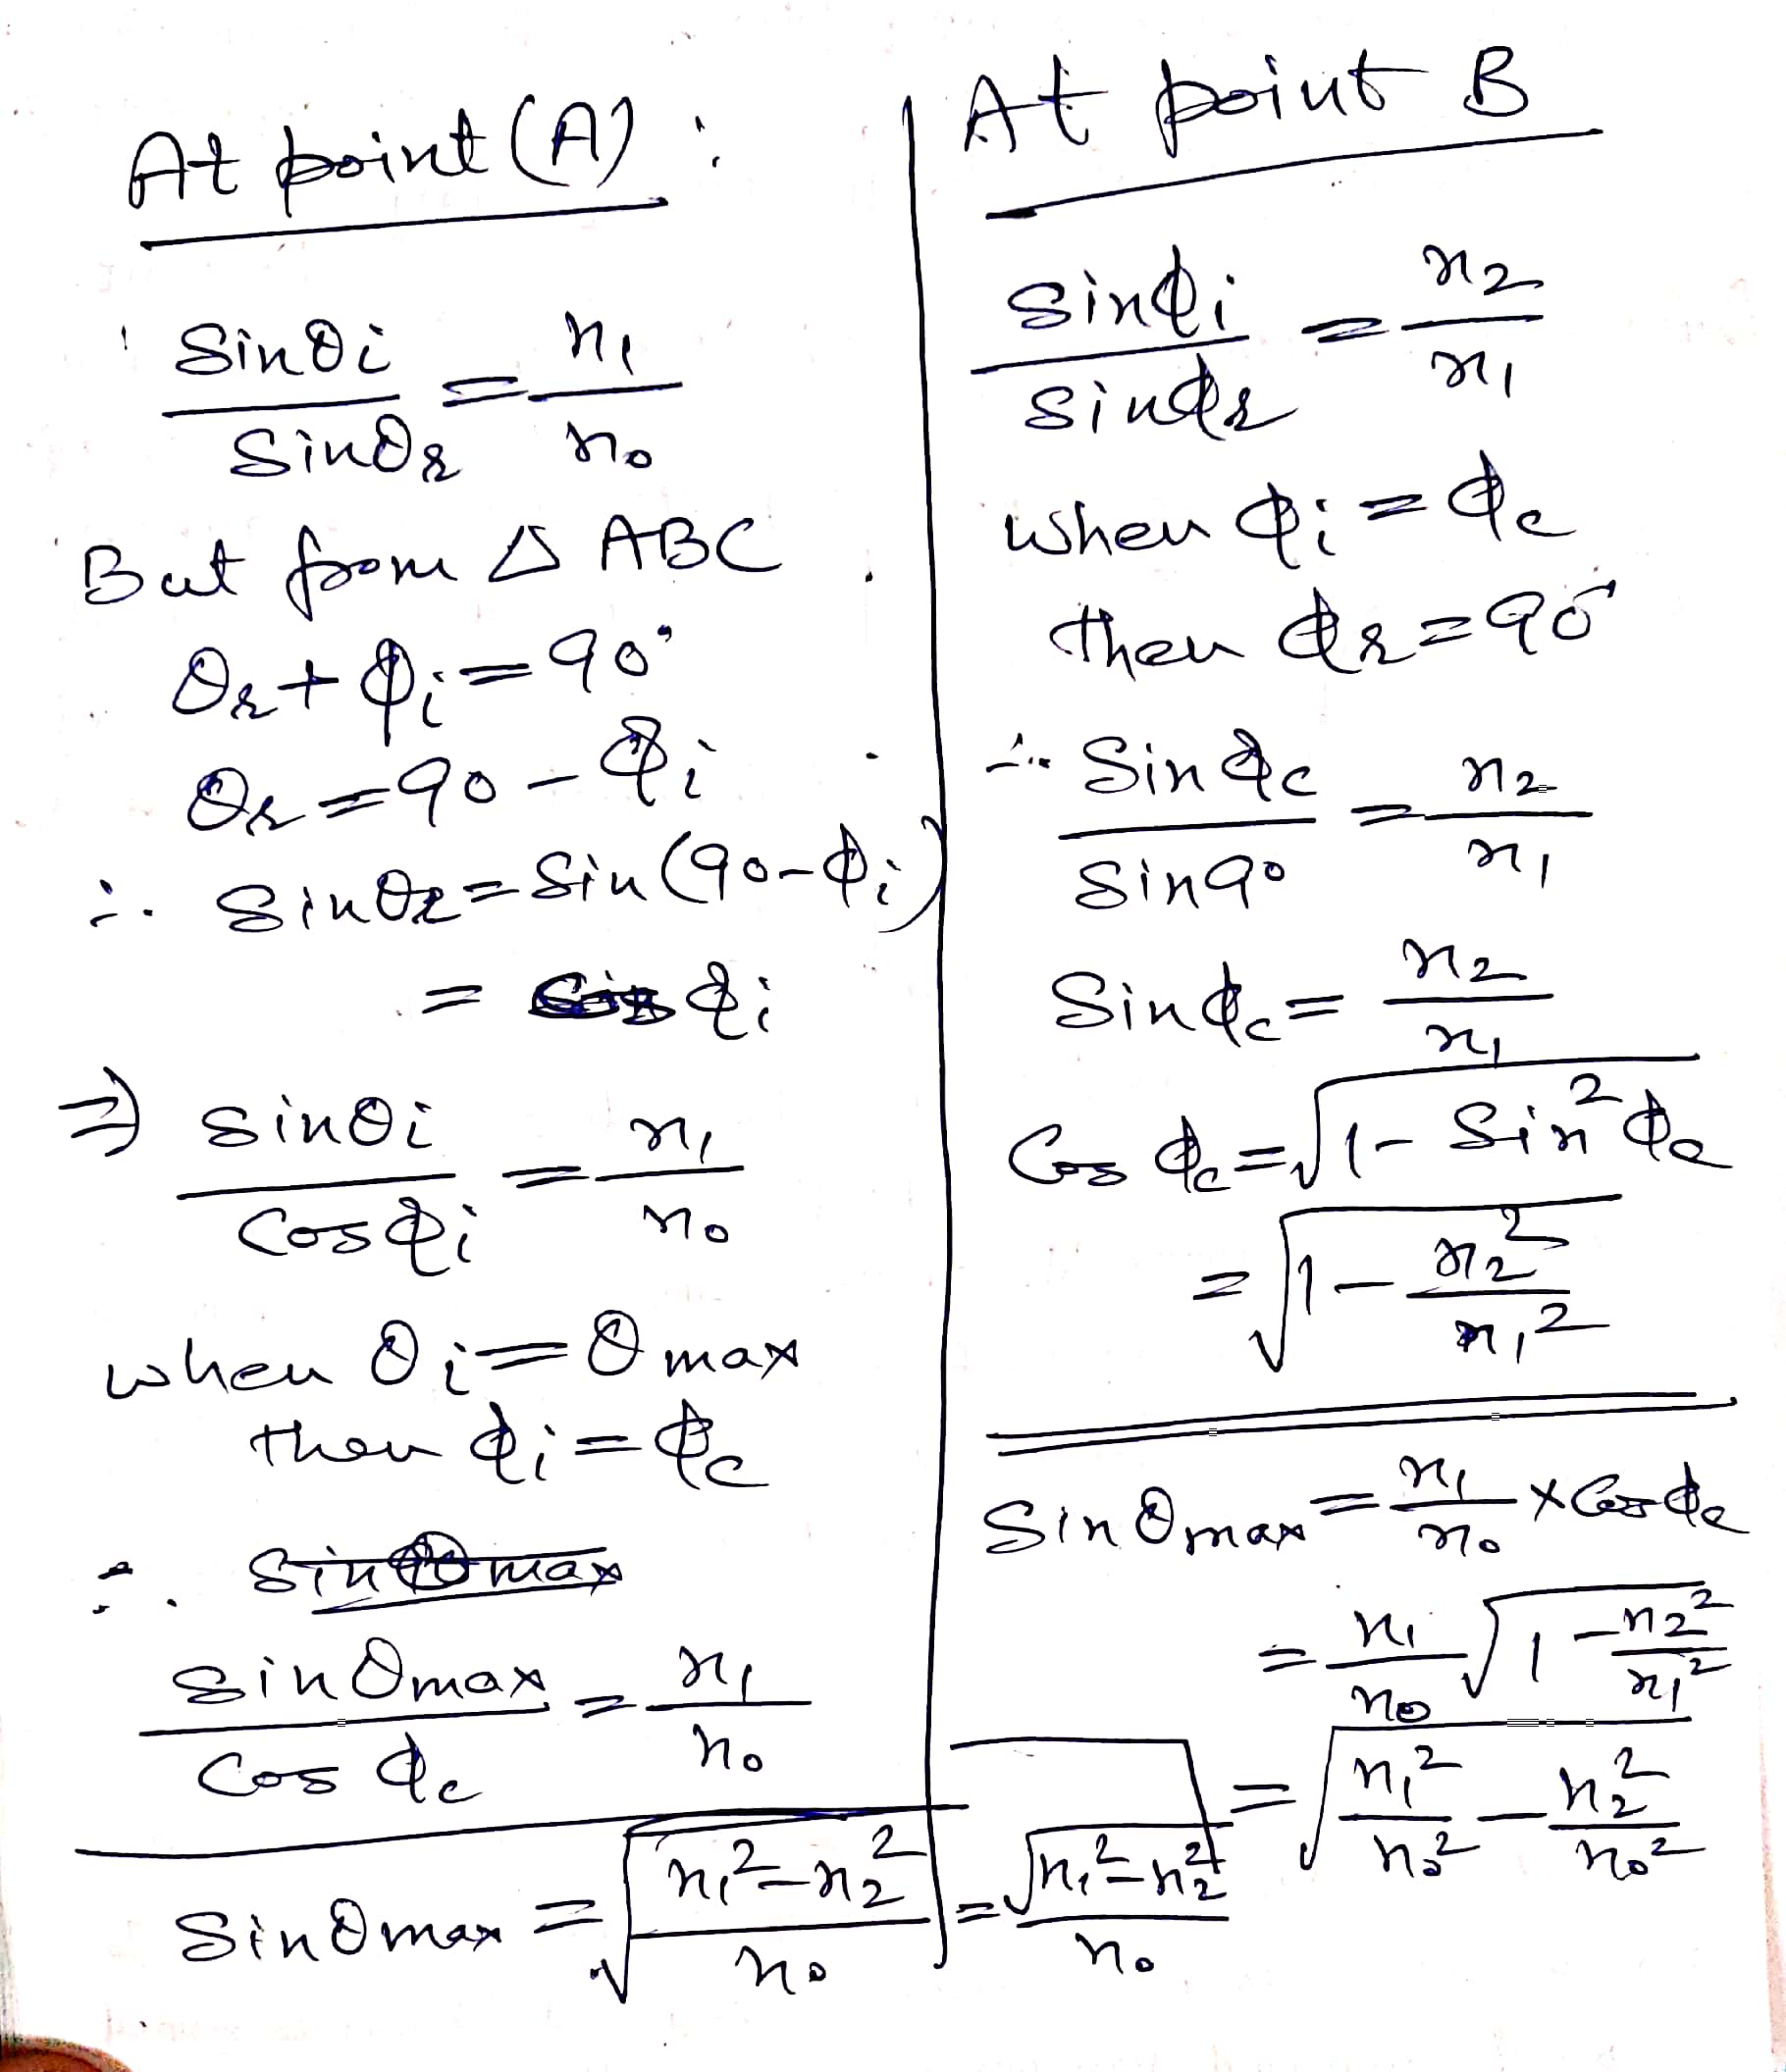 At point (A) :
Sinθi / Sinθr = n1 / n0
But from △ ABC
θr + ϕi = 90°
θr = 90 - ϕi
∴ Sinθr = Sin (90 - ϕi)
= Cos ϕi
⇒ Sinθi / Cosϕi = n1 / n0
when θi = θmax
then ϕi = ϕc
∴ Sinθmax
Sinθmax / Cos ϕc = n1 / n0
At point B
Sinϕi / Sinϕr = n2 / n1
when ϕi = ϕc
then ϕr = 90°
∴ Sin ϕc / Sin 90 = n2 / n1
Sinϕc = n2 / n1
Cos ϕc = √(1 - Sin²ϕc)
= √(1 - n2² / n1²)
Sinθmax = n1 / n0 × Cosϕc
= n1 / n0 √(1 - n2² / n1²)
= √(n1² / n0² - n2² / n0²)
Sinθmax = √((n1² - n2²) / n0) = √(n1² - n2²) / n0